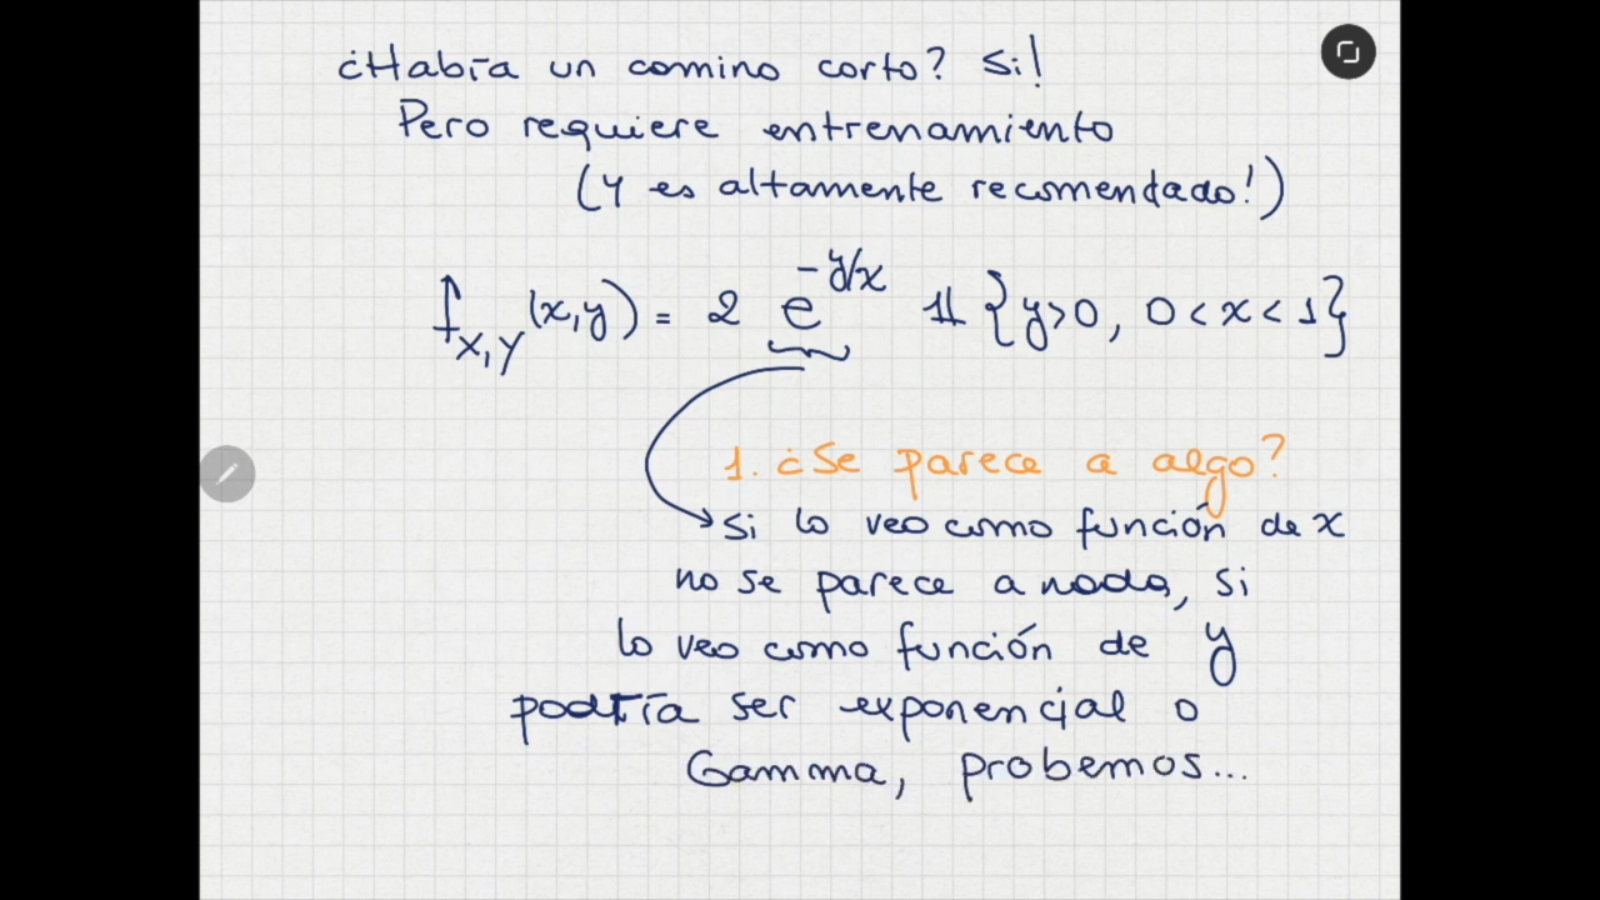 ¿Había un camino corto? Si!
Pero requiere entrenamiento
(Y es altamente recomendado!)
f_{X,Y}(x,y) = 2 e^{-y/x} 𝟙{y>0, 0<x<1}
1. ¿Se parece a algo?
Si lo veo como función de x
no se parece a nada, si
lo veo como función de y
podría ser exponencial o
Gamma, probemos...